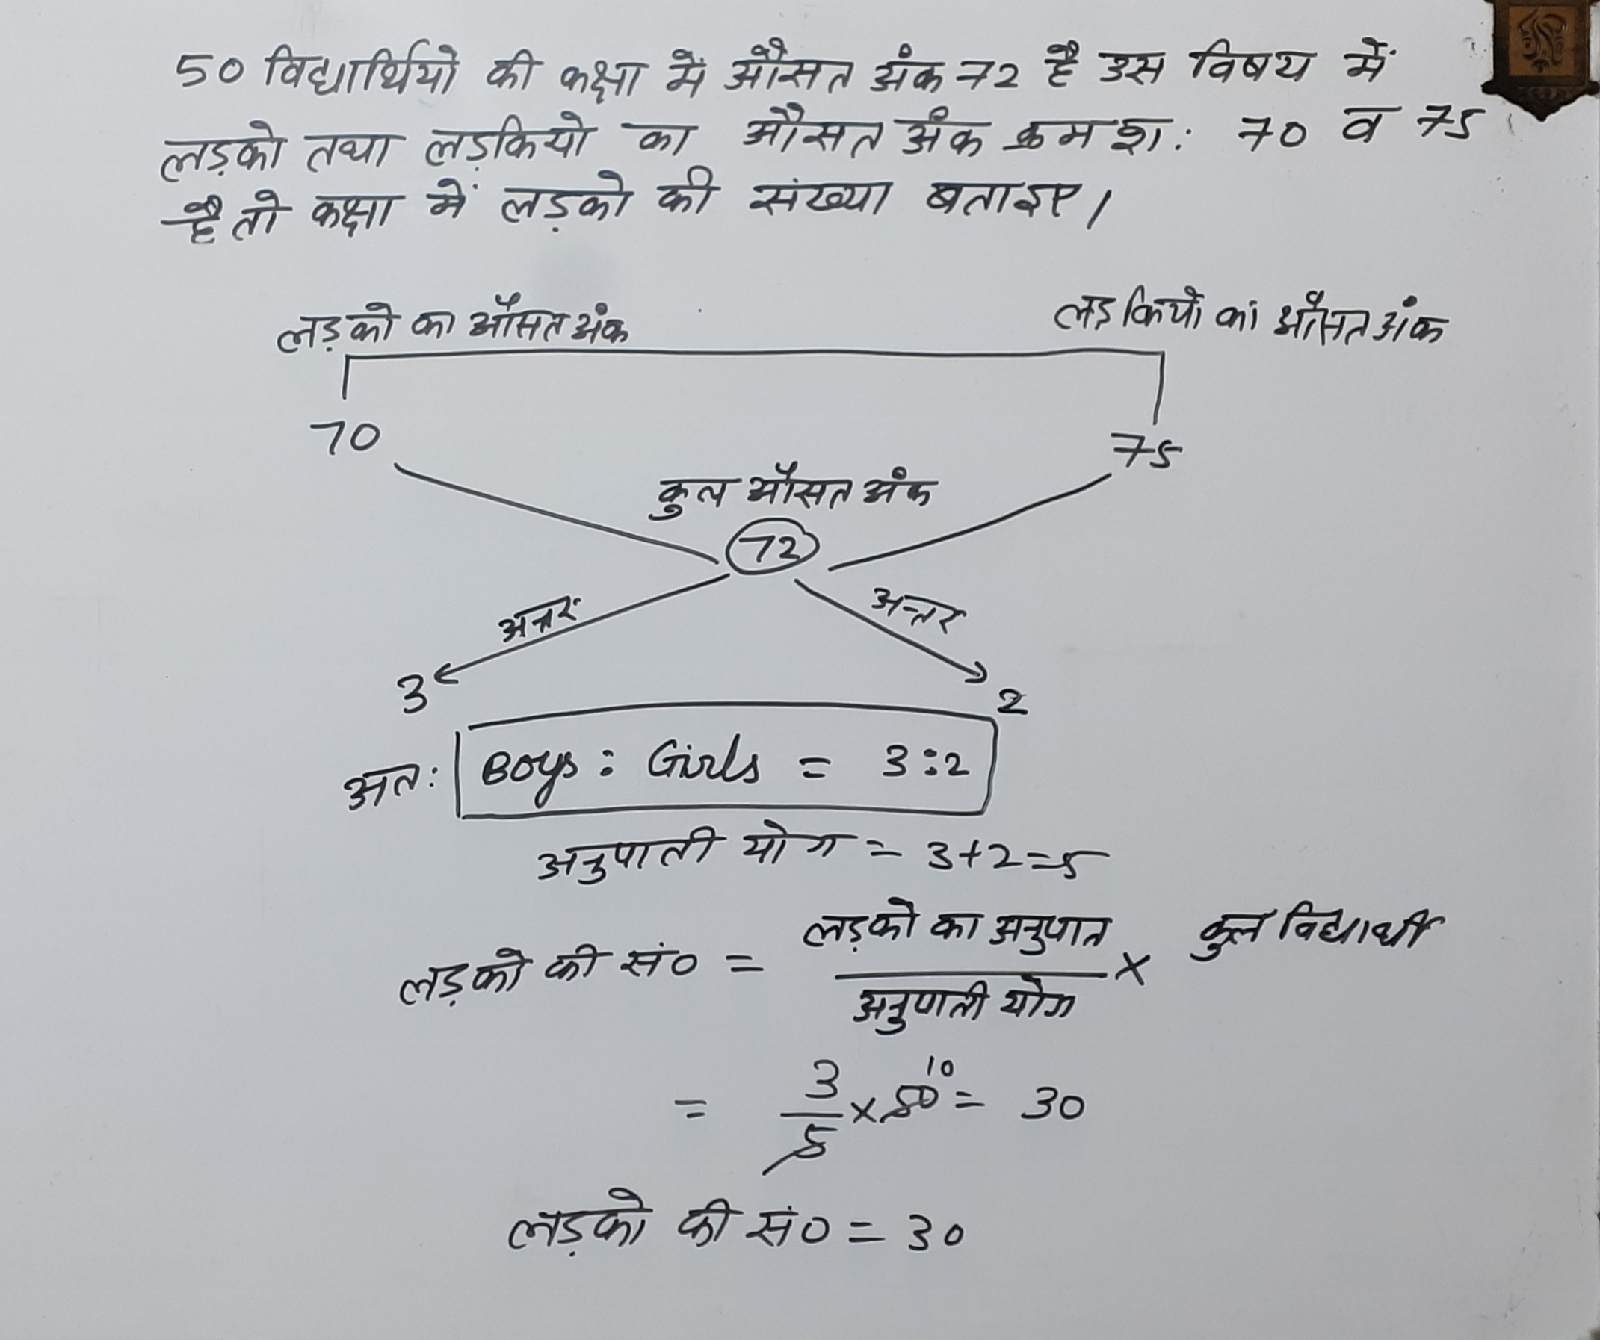 50 विद्यार्थियो की कक्षा में औसत अंक 72 है उस विषय में
लड़को तथा लड़कियो का औसत अंक क्रमशः 70 व 75
है तो कक्षा में लड़को की संख्या बताइए।
लड़को का औसत अंक
लड़कियो का औसत अंक
70
75
कुल औसत अंक
72
अन्तर
अन्तर
3
2
अतः Boys : Girls = 3:2
अनुपाती योग = 3+2=5
लड़को की सं० = लड़को का अनुपात / अनुपाती योग × कुल विद्यार्थी
= 3/5 × 50 10 = 30
लड़को की सं० = 30